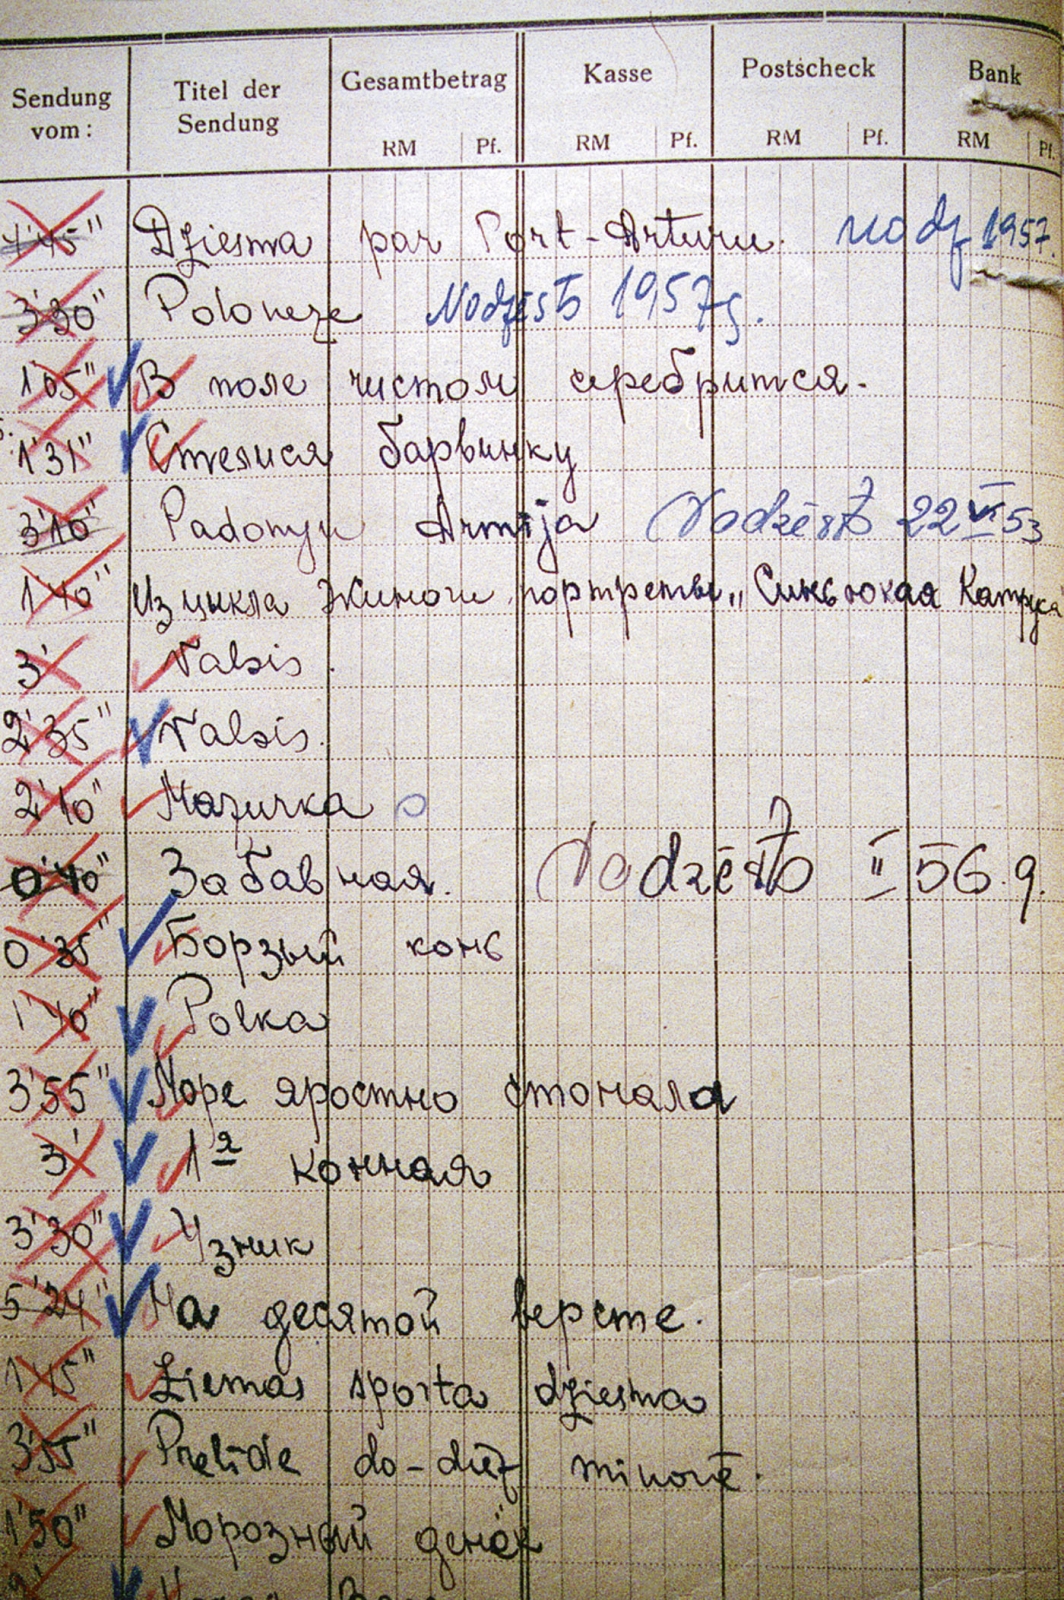 Sendung vom: Titel der Sendung Gesamtbetrag Kasse Postscheck Bank
RM Pf. RM Pf. RM Pf. RM Pf.
1'45" Dziesma par Port-Arturu. nodz 1957.
3'30" Poloneze Nodzēsts 1957g.
1'05" В поле чистом серебрится.
1'31" Стелися барвинку
3'10" Padomju Armija Nodzēsts 22 VI 53
1'40" Из цикла Жиночи портреты „Синьоокая Катруся
3' Valsis.
2'35" Valsis.
2'10" Мазурка
0'40" Забавная. Nodzēsts II 56.g.
0'35" Борзый конь
1'40" Polka
3'55" Море яростно стонала
3' 1я конная
3'30" Узник
5'24" На десятой версте.
1'45" Ziemas sporta dziesma
3'55" Prelīde do-diēz minorē.
1'50" Морозный денёк